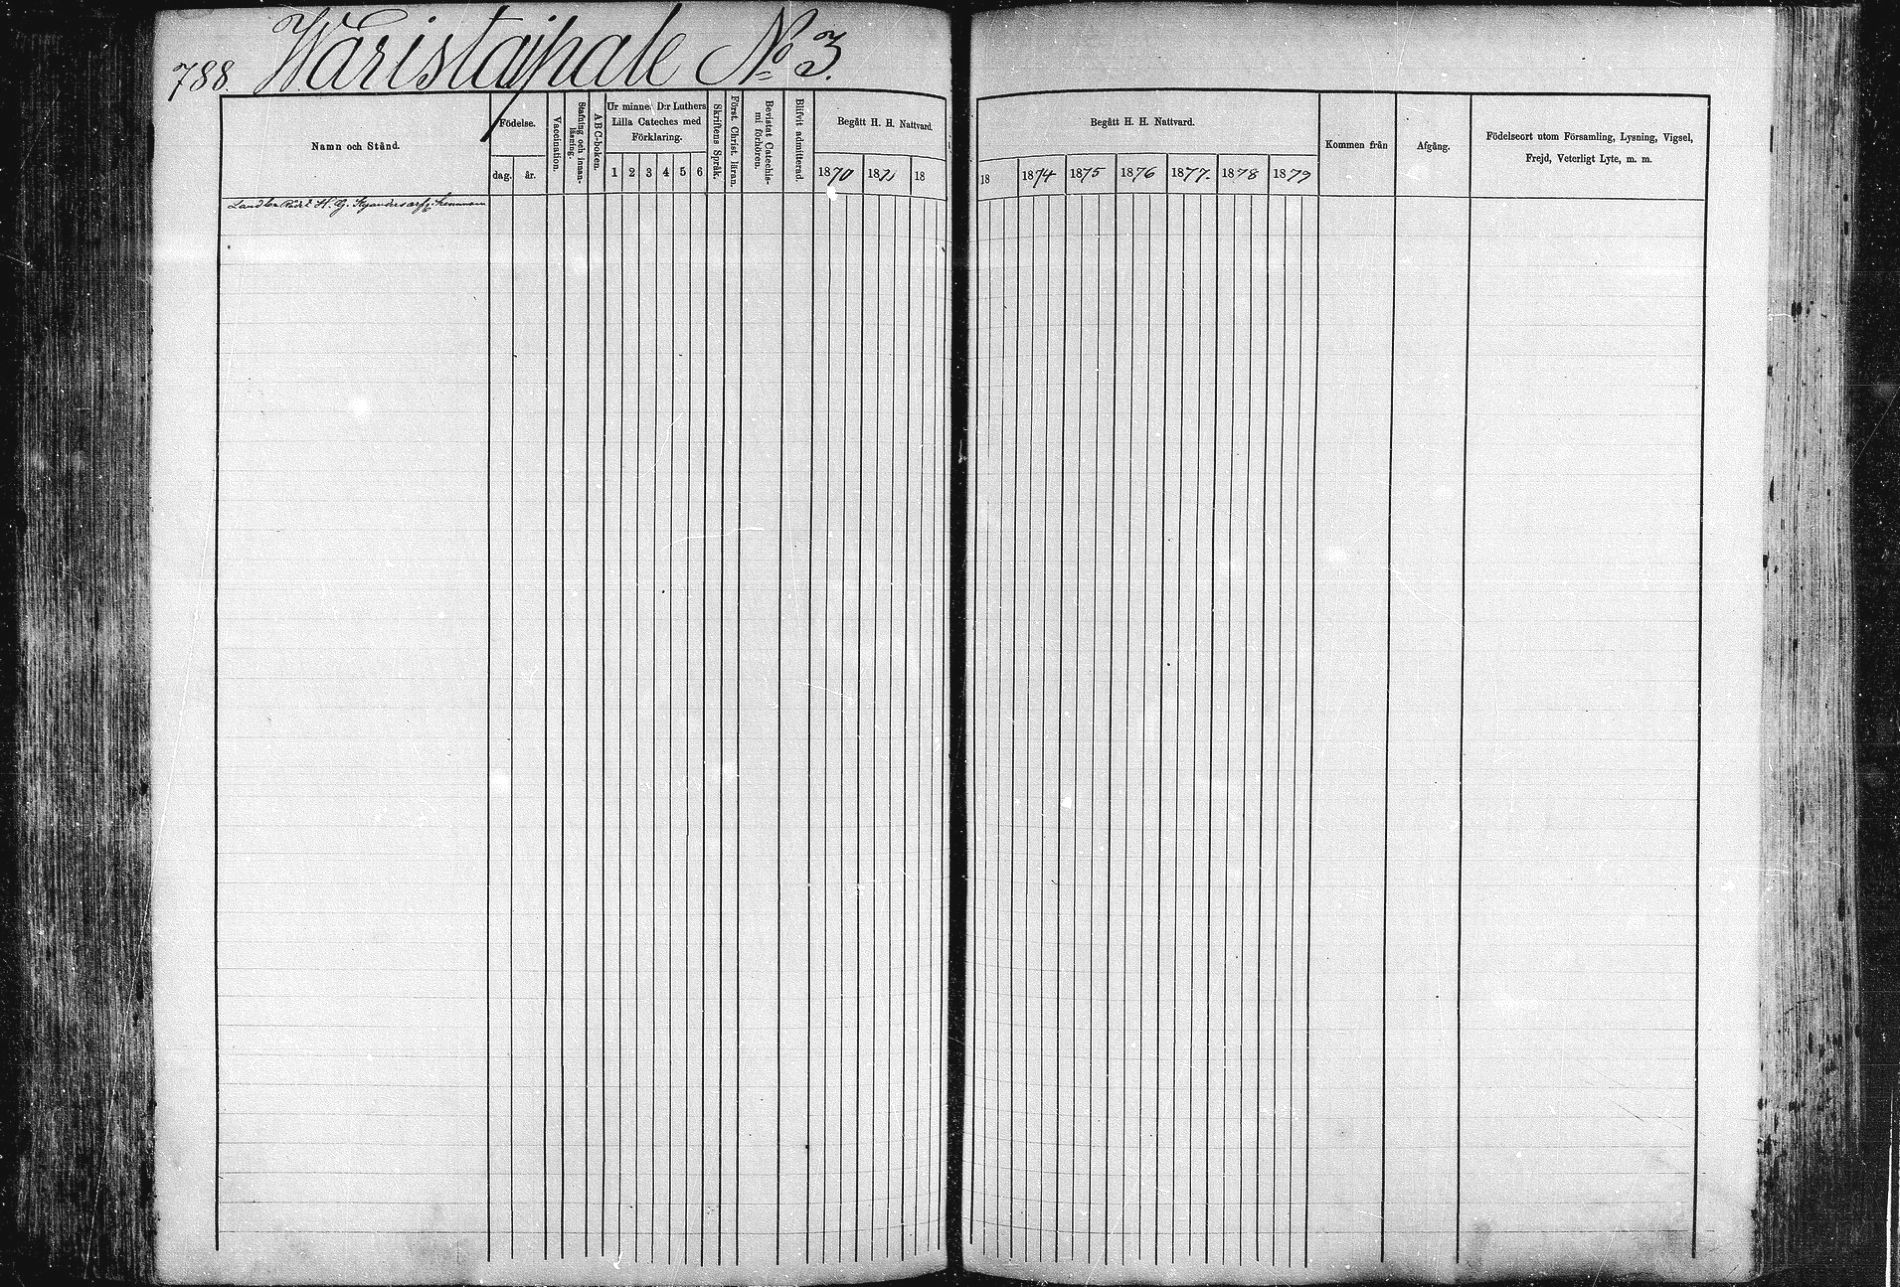 788. Waristaipale No 3.
Namn och Stånd.
Födelse.
dag. år.
Vaccination.
Stafning och innan-
läsning.
A B C-boken.
Ur minnet D:r Luthers
Lilla Cateches med
Förklaring.
1 2 3 4 5 6
Skriftens Språk.
Först. Christ. läran.
Bevistat Catechis-
mi förhören.
Blifvit admitterad.
Begått H. H. Nattvard.
1870 1871 18
Begått H. H. Nattvard.
18 1874 1875 1876 1877. 1878 1879
Kommen från
Afgång.
Födelseort utom Församling, Lysning, Vigsel,
Frejd, Veterligt Lyte, m. m.
H. G.